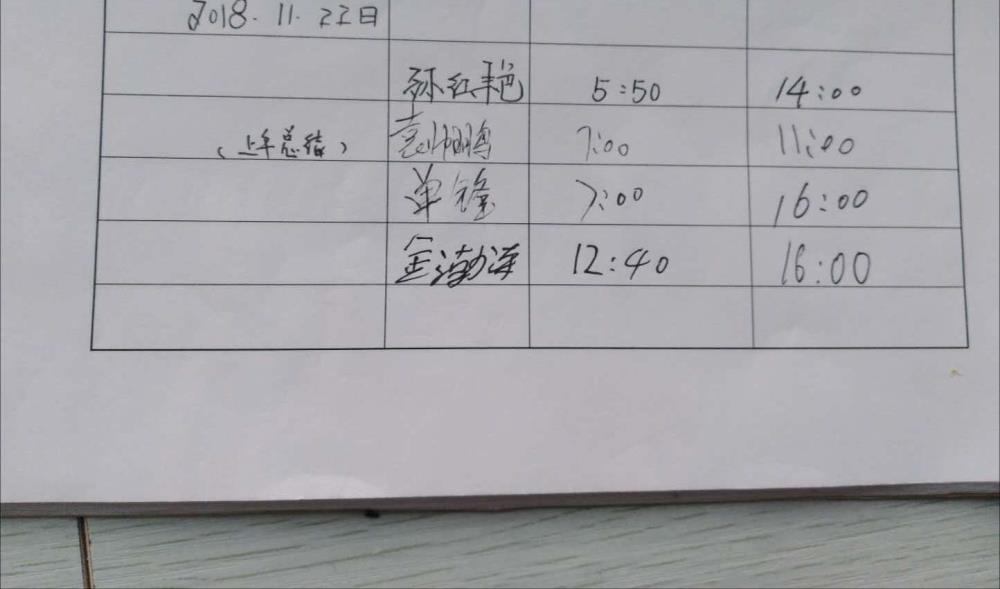 2018.11.22日
孙红艳 5:50 14:00
(上午总结) 袁帅鹏 7:00 11:00
单锋 7:00 16:00
金渤洋 12:40 16:00